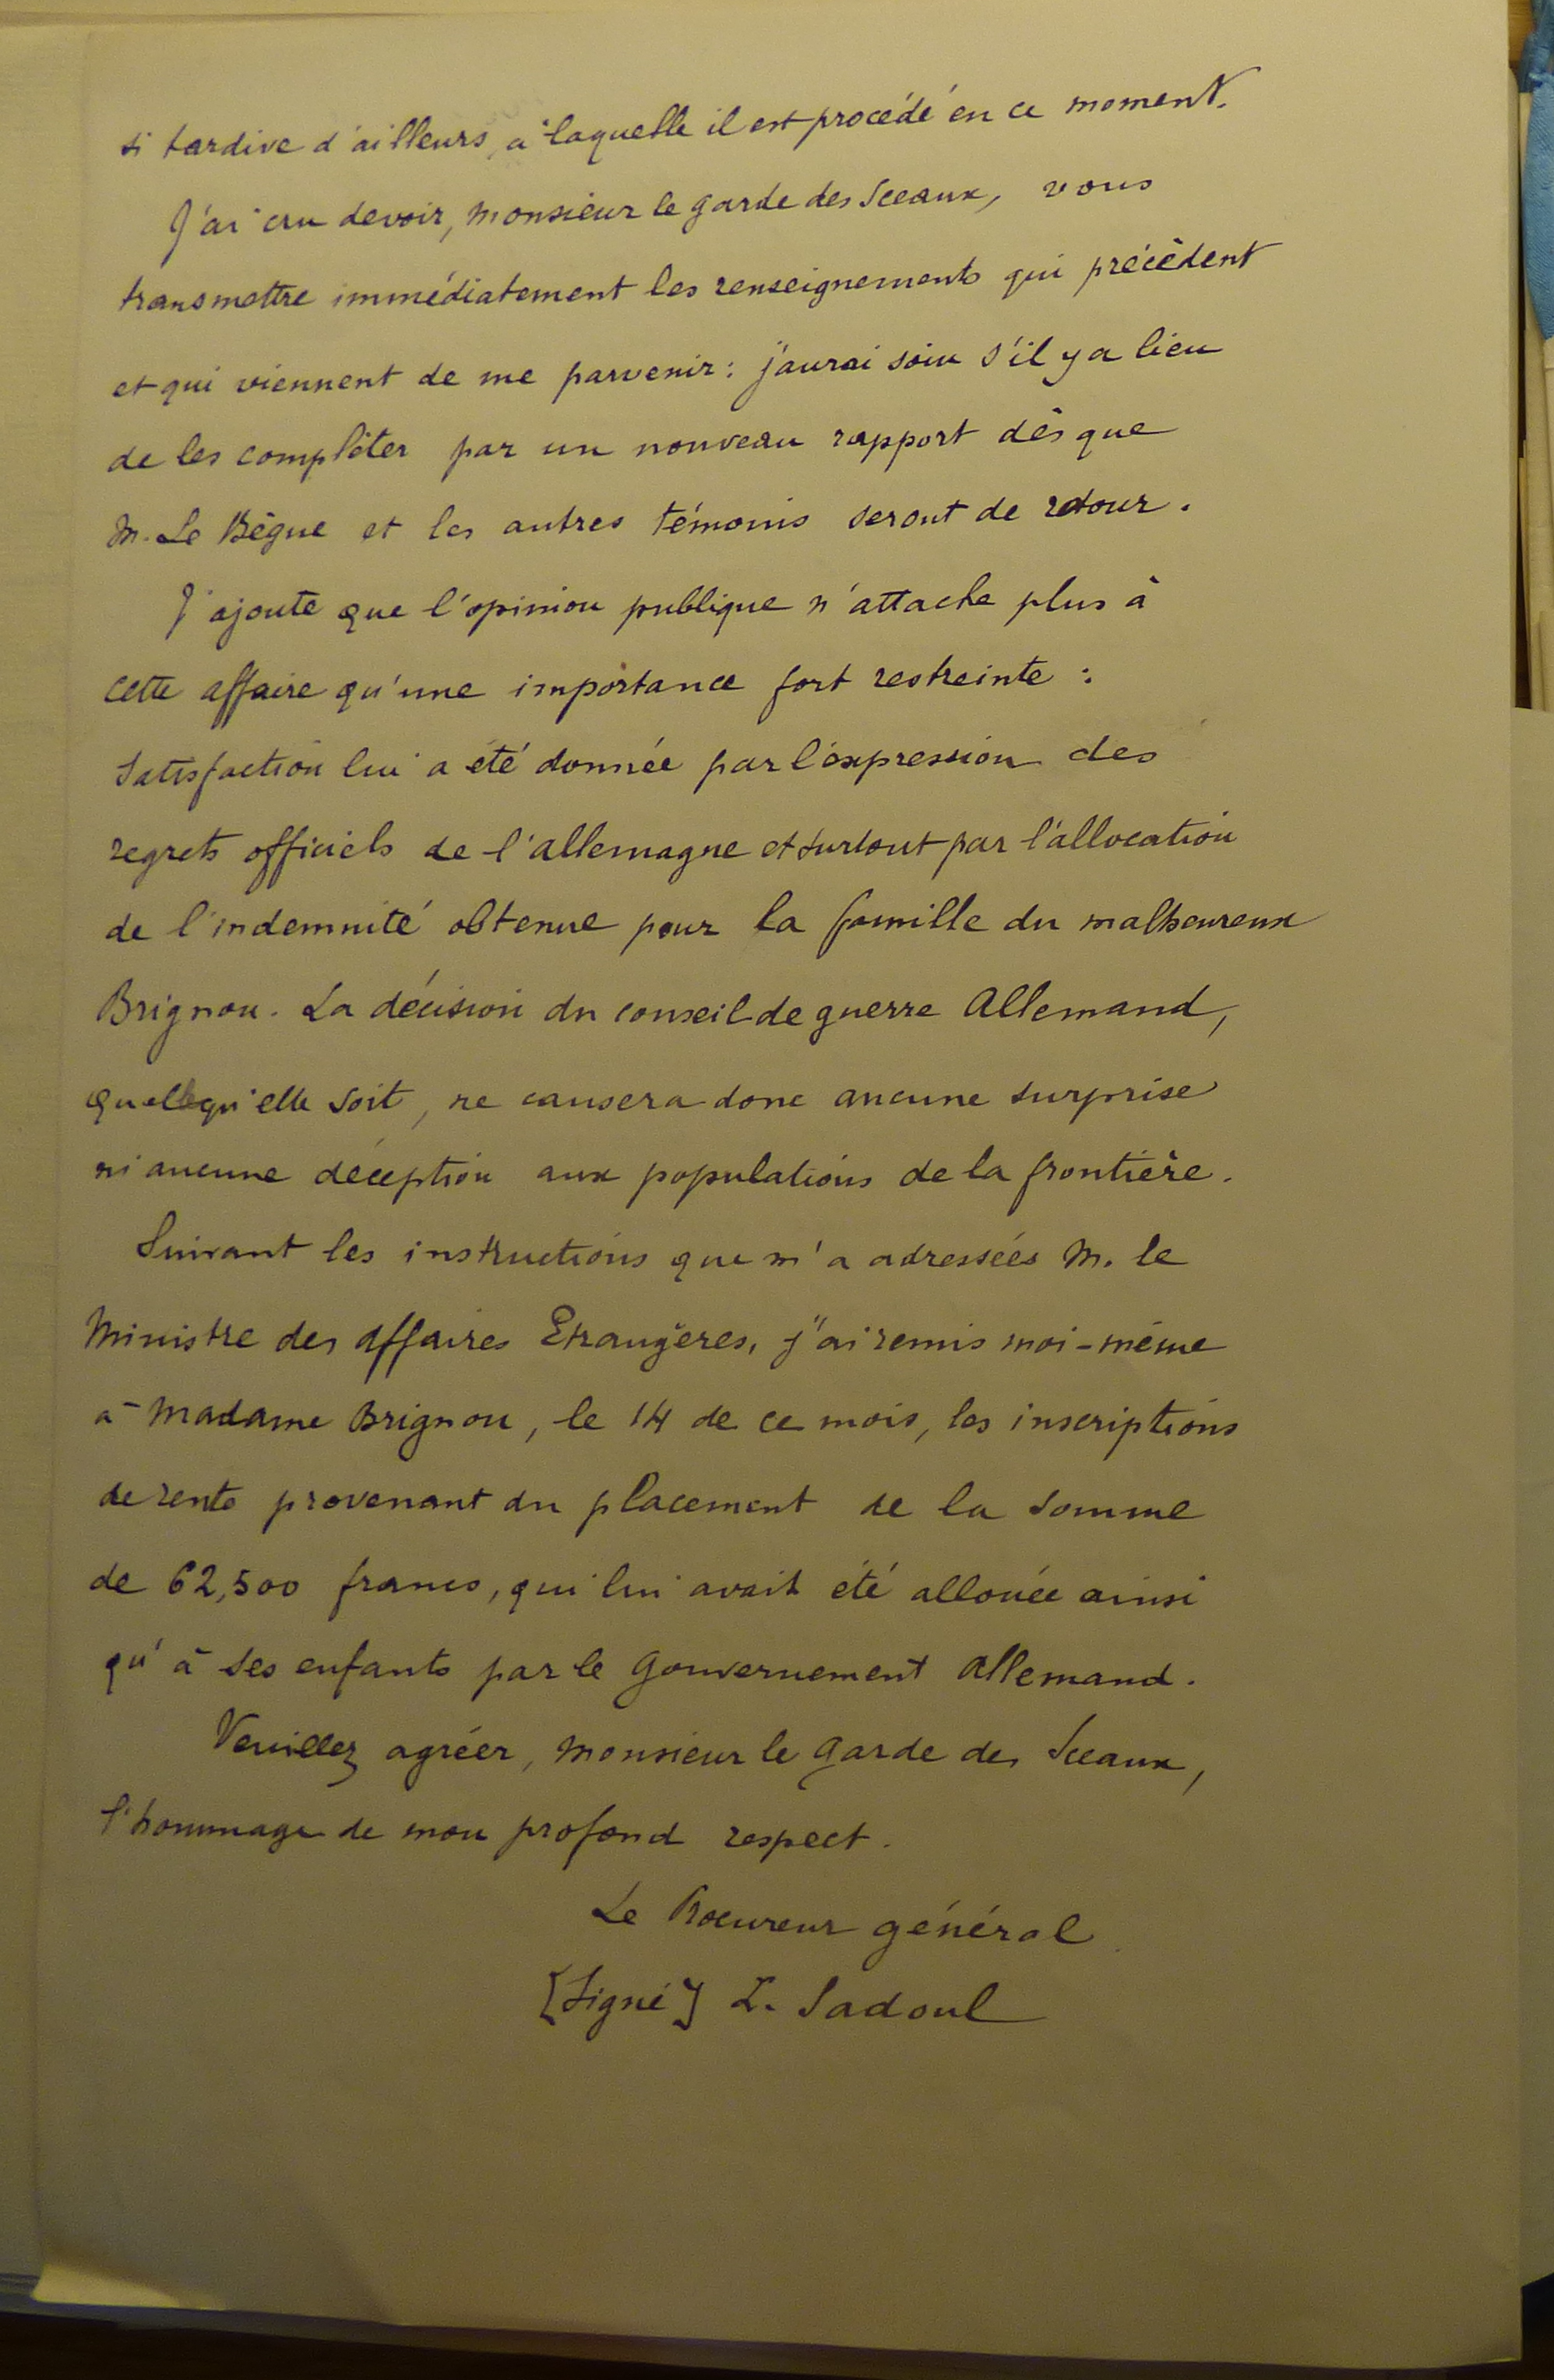 si tardive d'ailleurs, à laquelle il est procédé en ce moment.
J'ai cru devoir, Monsieur le Garde des Sceaux, vous
transmettre immédiatement les renseignements qui précèdent
et qui viennent de me parvenir : j'aurai soin s'il y a lieu
de les complèter par un nouveau rapport dès que
M. Le Bègue et les autres témoins seront de retour.
J'ajoute que l'opinion publique n'attache plus à
cette affaire qu'une importance fort restreinte :
satisfaction lui a été donnée par l'expression des
regrets officiels de l'Allemagne et surtout par l'allocation
de l'indemnité obtenue pour la famille du malheureux
Brignon. La décision du conseil de guerre Allemand,
quelle qu'elle soit, ne causera donc aucune surprise
ni aucune déception aux populations de la frontière.
Suivant les instructions que m'a adressées M. le
Ministre des Affaires Etrangères, j'ai remis moi-même
à Madame Brignon, le 14 de ce mois, les inscriptions
de rente provenant du placement de la somme
de 62,500 francs, qui lui avait été allouée ainsi
qu'à ses enfants par le Gouvernement Allemand.
Veuillez agréer, Monsieur le Garde des Sceaux,
l'hommage de mon profond respect.
Le Procureur général
[Signé] L. Sadoul